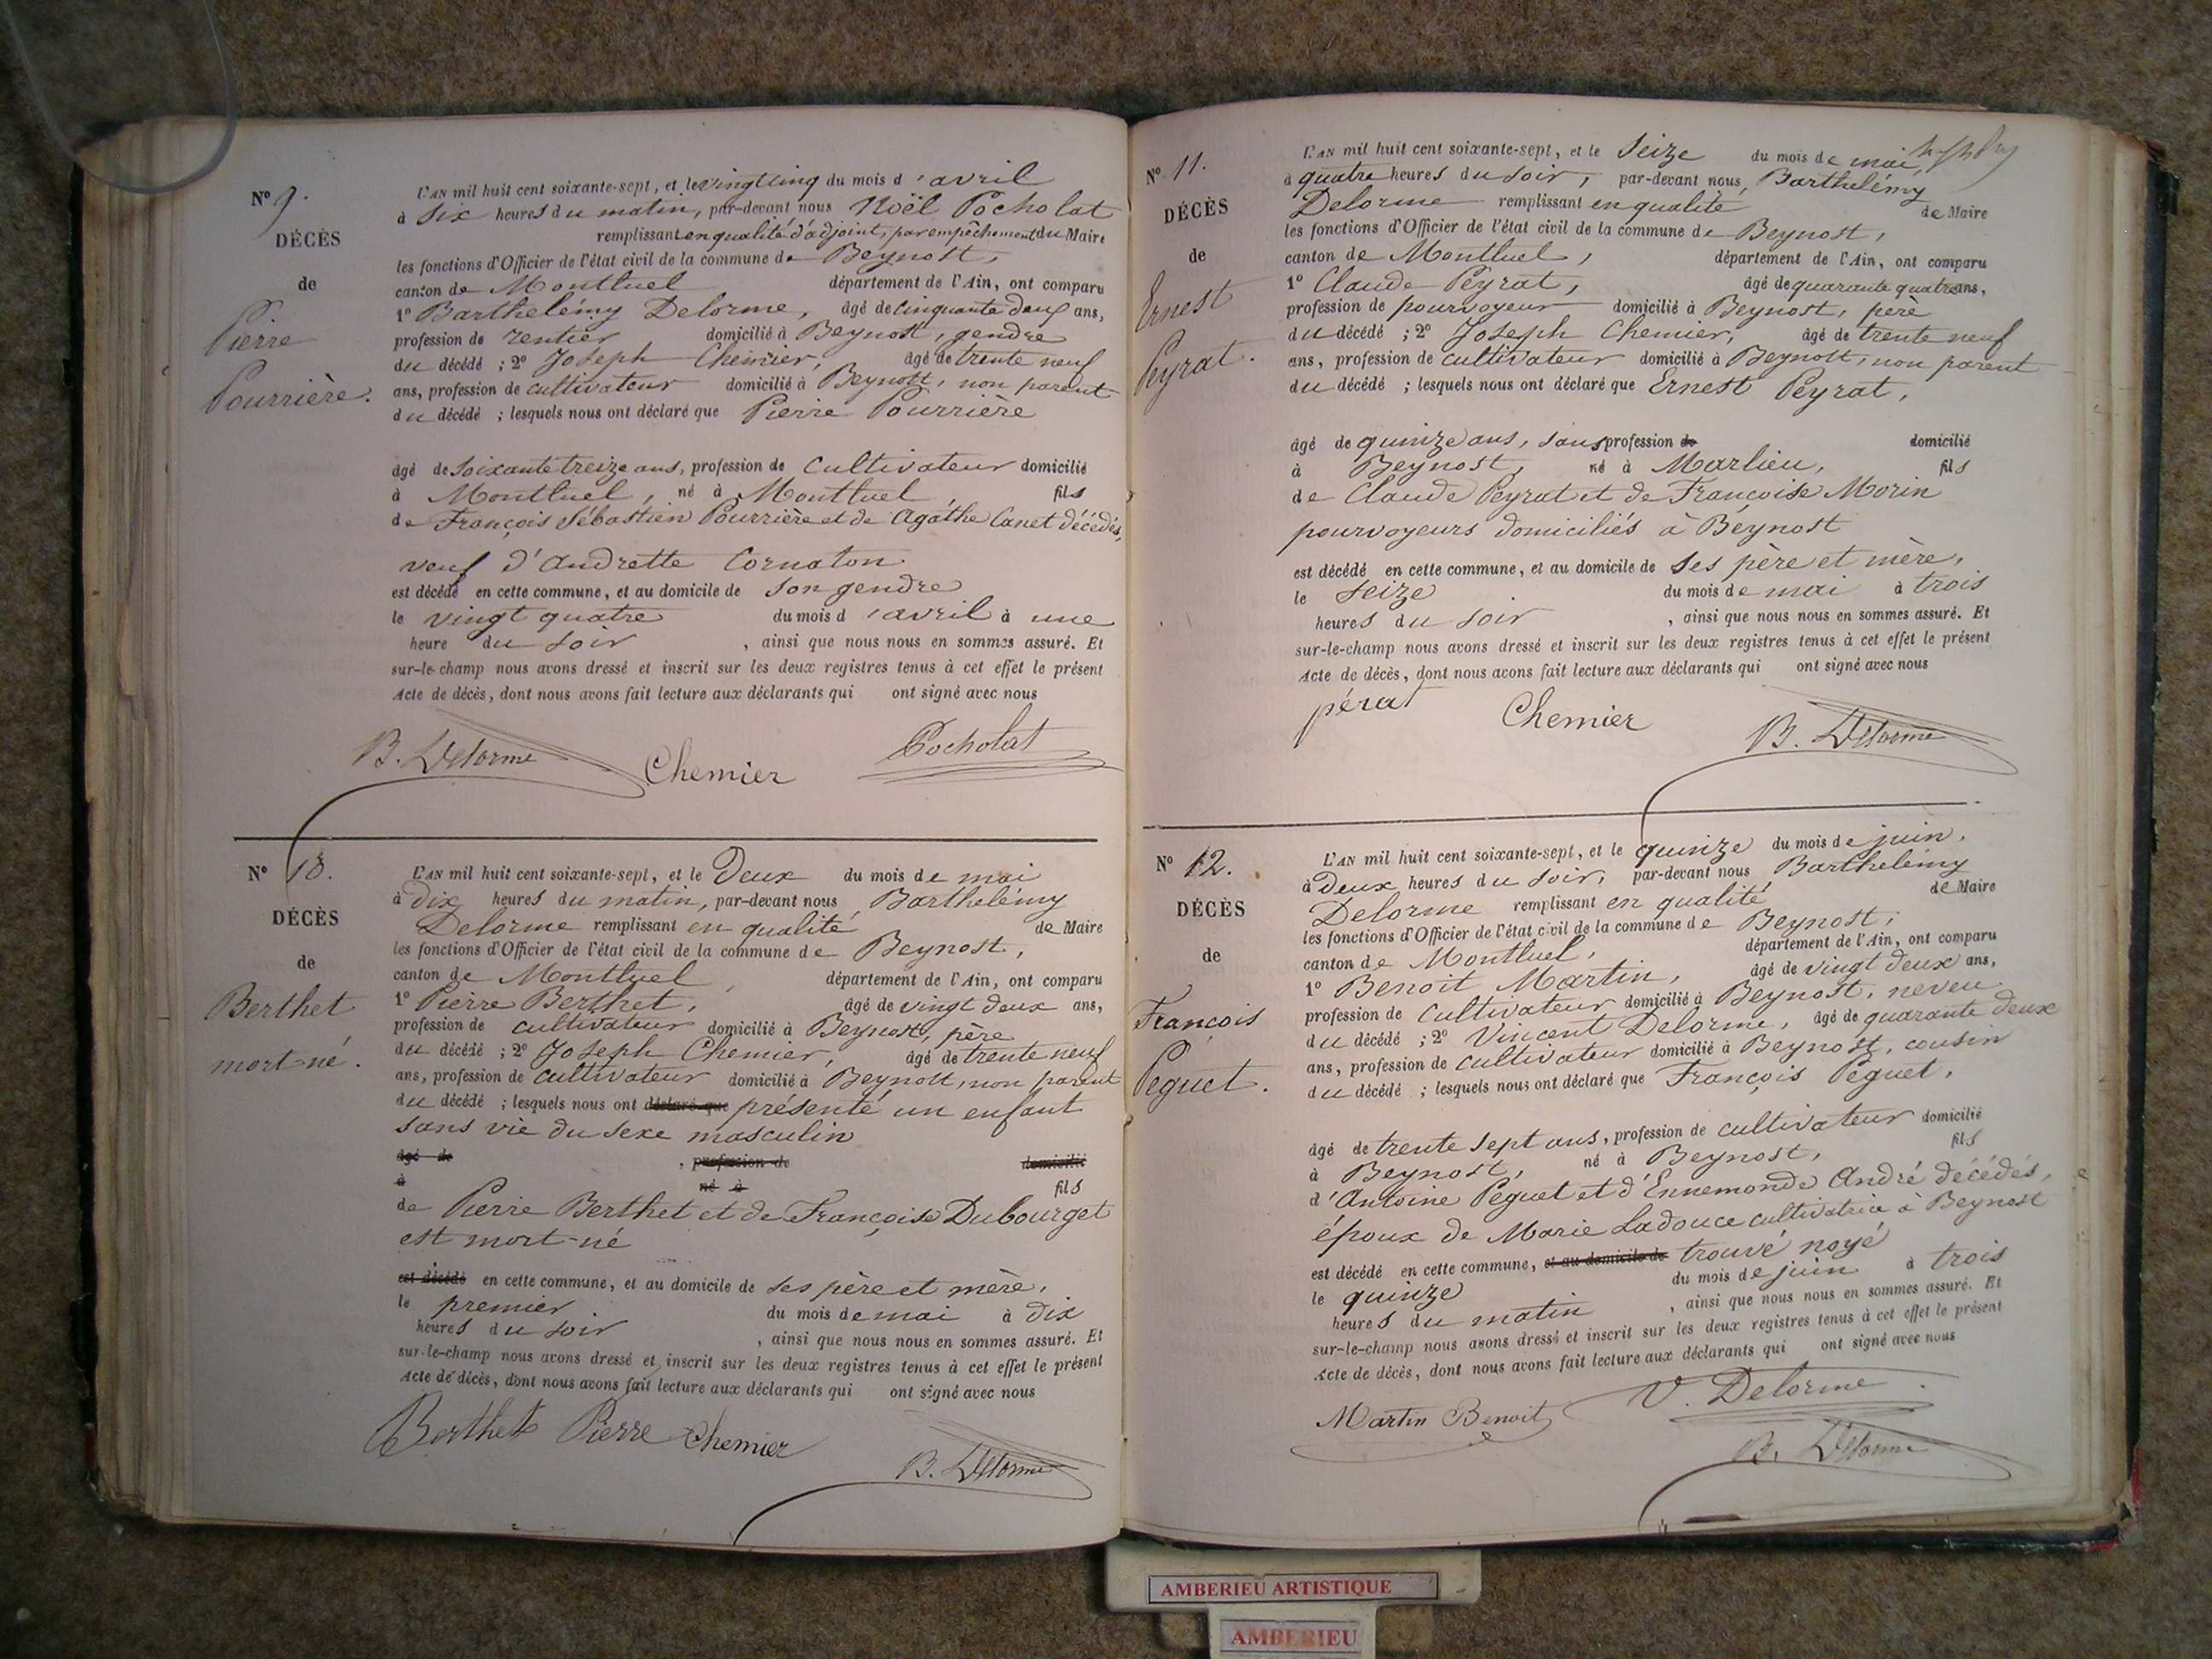 N° 9.
DÉCÈS
de
Pierre
Pourrière.
L'AN mil huit cent soixante-sept, et le vingt cinq du mois d'avril
à six heures du matin, par-devant nous Noël Pocholat
remplissant en qualité d'adjoint, par empêchement du Maire
les fonctions d'Officier de l'état civil de la commune de Beynost,
canton de Montluel département de l'Ain, ont comparu
1° Barthelémy Delorme, âgé de cinquante deux ans,
profession de rentier domicilié à Beynost, gendre
du décédé ; 2° Joseph Chemier, âgé de trente neuf
ans, profession de cultivateur domicilié à Beynost, non parent
du décédé ; lesquels nous ont déclaré que Pierre Pourrière
âgé de soixante treize ans, profession de cultivateur domicilié
à Montluel, né à Montluel, fils
de François Sébastien Pourrière et de Agathe Canet décédés,
veuf d'Andrette Cornaton
est décédé en cette commune, et au domicile de son gendre
le vingt quatre du mois d'avril à une
heure du soir, ainsi que nous nous en sommes assuré. Et
sur-le-champ nous avons dressé et inscrit sur les deux registres tenus à cet effet le présent
Acte de décès, dont nous avons fait lecture aux déclarants qui ont signé avec nous
B. Delorme Chemier Pocholat
N° 10.
DÉCÈS
de
Berthet
mort-né.
L'AN mil huit cent soixante-sept, et le Deux du mois de mai
à dix heures du matin, par-devant nous Barthelémy
Delorme remplissant en qualité de Maire
les fonctions d'Officier de l'état civil de la commune de Beynost,
canton de Montluel, département de l'Ain, ont comparu
1° Pierre Berthet, âgé de vingt deux ans,
profession de cultivateur domicilié à Beynost, père
du décédé ; 2° Joseph Chemier, âgé de trente neuf
ans, profession de cultivateur domicilié à Beynost, non parent
du décédé ; lesquels nous ont déclaré que présenté un enfant
sans vie du sexe masculin
âgé de , profession de domicilié
à né à fils
de Pierre Berthet et de Françoise Dubourget
est mort-né
est décédé en cette commune, et au domicile de ses père et mère,
le premier du mois de mai à dix
heures du soir, ainsi que nous nous en sommes assuré. Et
sur-le-champ nous avons dressé et inscrit sur les deux registres tenus à cet effet le présent
Acte de décès, dont nous avons fait lecture aux déclarants qui ont signé avec nous
Berthet Pierre Chemier
B. Delorme
N° 11.
DÉCÈS
de
Ernest
Peyrat.
L'AN mil huit cent soixante-sept, et le seize du mois de mai,
à quatre heures du soir, par-devant nous, Barthelémy
Delorme remplissant en qualité de Maire
les fonctions d'Officier de l'état civil de la commune de Beynost,
canton de Montluel, département de l'Ain, ont comparu
1° Claude Peyrat, âgé de quarante quatre ans,
profession de pourvoyeur domicilié à Beynost, père
du décédé ; 2° Joseph Chemier, âgé de trente neuf
ans, profession de cultivateur domicilié à Beynost, non parent
du décédé ; lesquels nous ont déclaré que Ernest Peyrat,
âgé de quinze ans, sans profession de domicilié
à Beynost, né à Marlieu, fils
de Claude Peyrat et de Françoise Morin
pourvoyeurs domiciliés à Beynost
est décédé en cette commune, et au domicile de ses père et mère,
le seize du mois de mai à trois
heures du soir, ainsi que nous nous en sommes assuré. Et
sur-le-champ nous avons dressé et inscrit sur les deux registres tenus à cet effet le présent
Acte de décès, dont nous avons fait lecture aux déclarants qui ont signé avec nous
pérat Chemier B. Delorme
N° 12.
DÉCÈS
de
François
Peguet.
L'AN mil huit cent soixante-sept, et le quinze du mois de juin,
à deux heures du soir, par-devant nous Barthelémy
Delorme remplissant en qualité de Maire
les fonctions d'Officier de l'état civil de la commune de Beynost,
canton de Montluel, département de l'Ain, ont comparu
1° Benoit Martin, âgé de vingt deux ans,
profession de cultivateur domicilié à Beynost, neveu
du décédé ; 2° Vincent Delorme, âgé de quarante deux
ans, profession de cultivateur domicilié à Beynost, cousin
du décédé ; lesquels nous ont déclaré que François Peguet,
âgé de trente sept ans, profession de cultivateur domicilié
à Beynost, né à Beynost, fils
d'Antoine Peguet et d'Ennemonde André décédés,
époux de Marie Ladouce cultivatrice à Beynost
est décédé en cette commune, et au domicile de trouvé noyé
le quinze du mois de juin à trois
heures du matin, ainsi que nous nous en sommes assuré. Et
sur-le-champ nous avons dressé et inscrit sur les deux registres tenus à cet effet le présent
Acte de décès, dont nous avons fait lecture aux déclarants qui ont signé avec nous
Martin Benoit V. Delorme
B. Delorme
AMBERIEU ARTISTIQUE
AMBERIEU